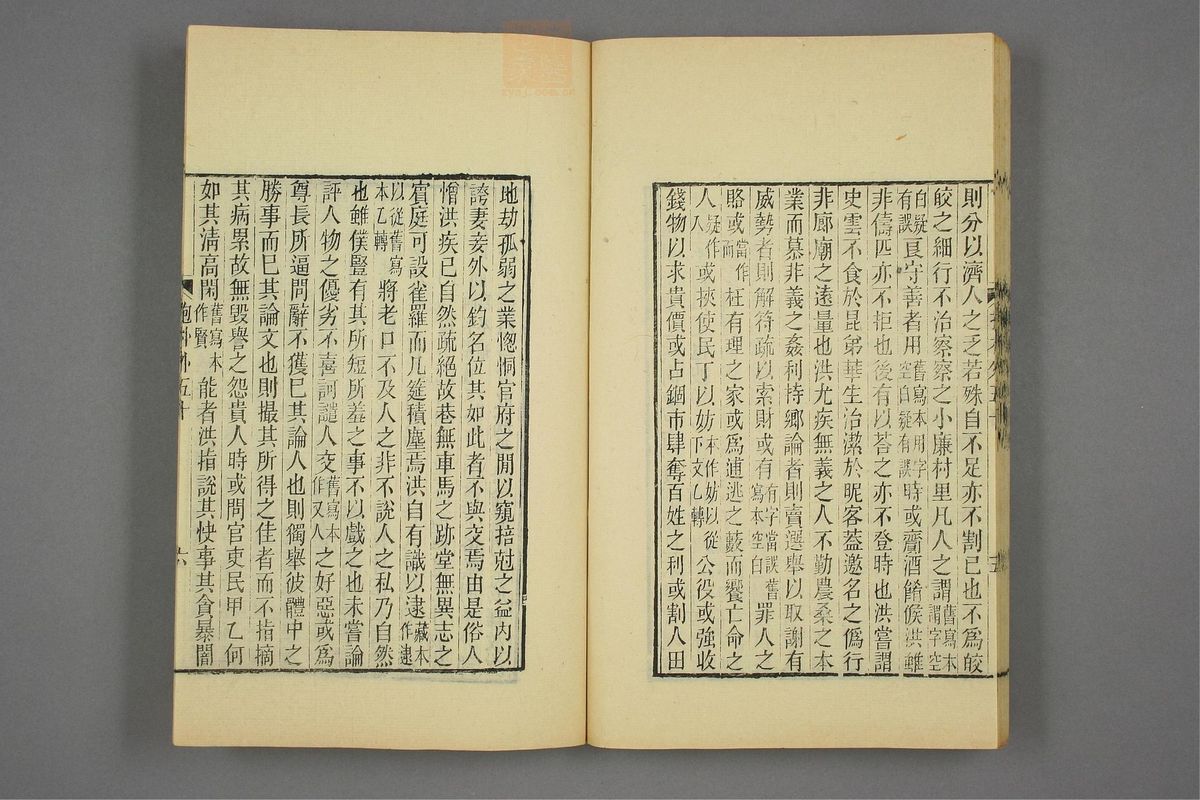 則分以濟人之乏若殊自不足亦不割己也不爲皎
皎之細行不治察察之小廉村里凡人之謂舊寫本謂字空
白疑有誤良守善者用舊寫本用字空白疑有誤時或齎酒餚候洪雖
非儔匹亦不拒也後有以荅之亦不登時也洪嘗謂
史雲不食於昆弟華生治潔於昵客蓋邀名之僞行
非廊廟之遠量也洪尤疾無義之人不勤農桑之本
業而慕非義之姦利持鄉論者則賣選舉以取謝有
威勢者則解符疏以索財或有有字當誤舊寫本空白罪人之
賂或當作而枉有理之家或爲逋逃之藪而饗亡命之
人疑作入或挾使民丁以妨本作妨以從下文乙轉公役或強收
錢物以求貴價或占錮市肆奪百姓之利或割人田
地劫孤弱之業惚恫官府之閒以窺掊尅之益內以
誇妻妾外以釣名位其如此者不與交焉由是俗人
憎洪疾已自然疏絕故巷無車馬之跡堂無異志之
賓庭可設雀羅而几筵積塵焉洪自有識以逮藏本作逮
以從舊寫本乙轉將老口不及人之非不說人之私乃自然
也雖僕豎有其所短所羞之事不以戲之也未嘗論
評人物之優劣不喜訶譴人交舊寫本作又人之好惡或爲
尊長所逼問辭不獲已其論人也則獨舉彼體中之
勝事而已其論文也則撮其所得之佳者而不指摘
其病累故無毀譽之怨貴人時或問官吏民甲乙何
如其清高閑舊寫本作賢能者洪指說其快事其貪暴闇
抱朴外五十
六